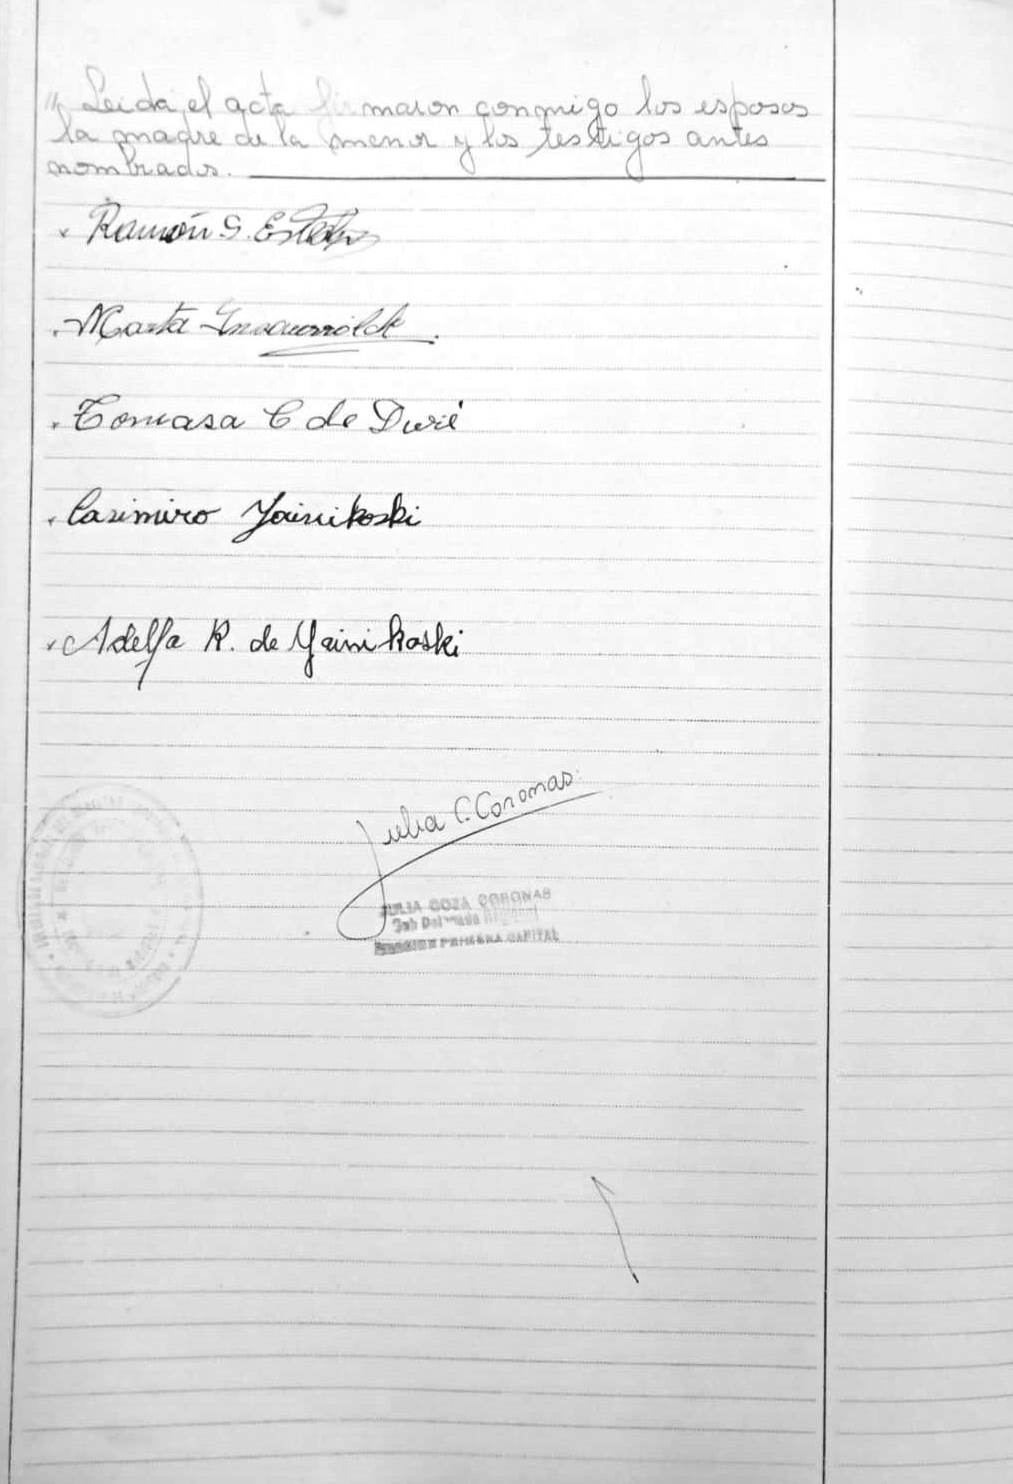 "Leida el acta firmaron conmigo los esposos
la madre de la menor y los testigos antes
nombrados.
Ramón G.
Marta
Tomasa C de Duré
Casimiro Yainikoski
Adelfa R. de Yainikoski
Julia C. Coronas
JULIA COZA CORONAS
Sub Delegada Regional
PRIMERA CAPITAL